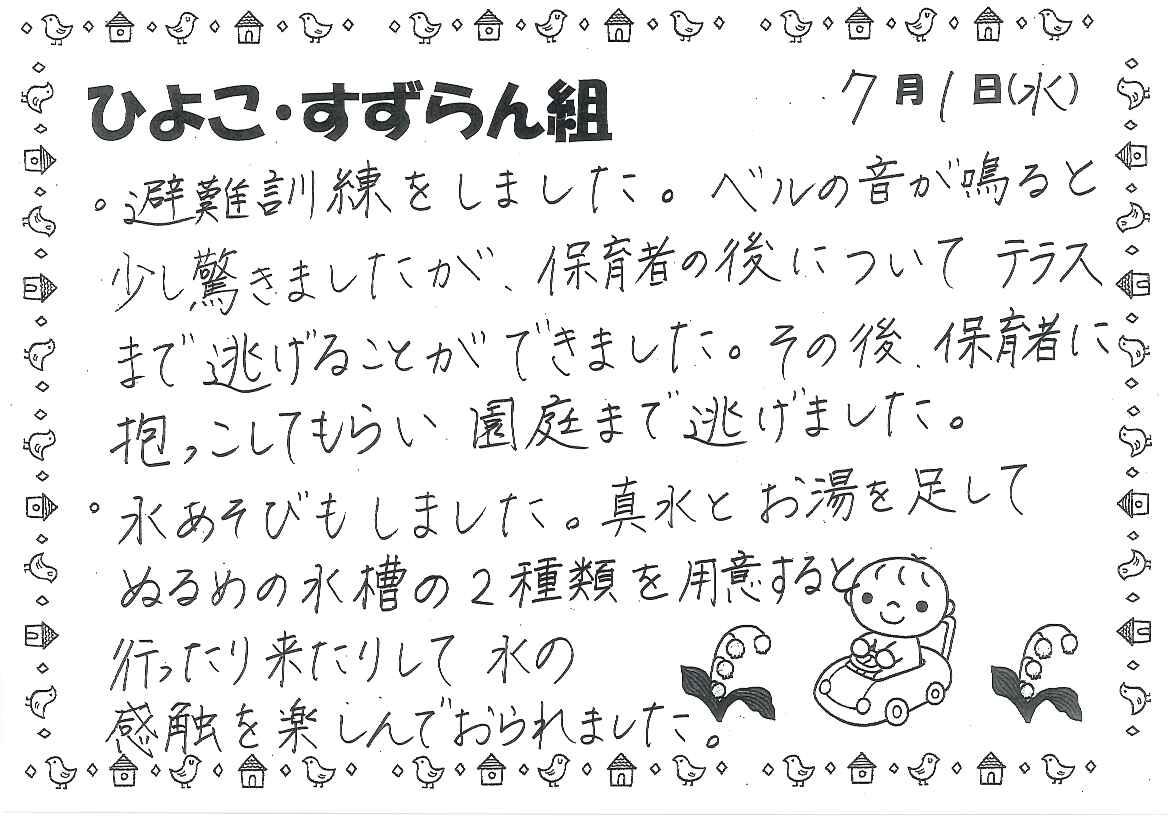 ひよこ・すずらん組
7月1日(水)
。避難訓練をしました。ベルの音が鳴ると
少し驚きましたが、保育者の後について テラス
まで逃げることができました。その後、保育者に
抱っこしてもらい 園庭まで逃げました。
。水あそびもしました。真水と お湯を足して
ぬるめの水槽の2種類を用意すると
行ったり来たりして 水の
感触を楽しんでおられました。